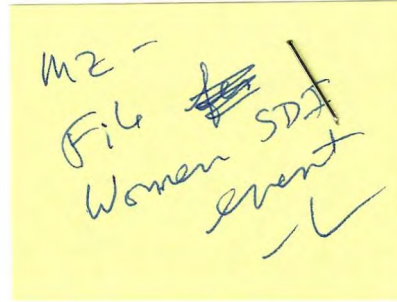 MZ -
File
Women SDI
event
-L